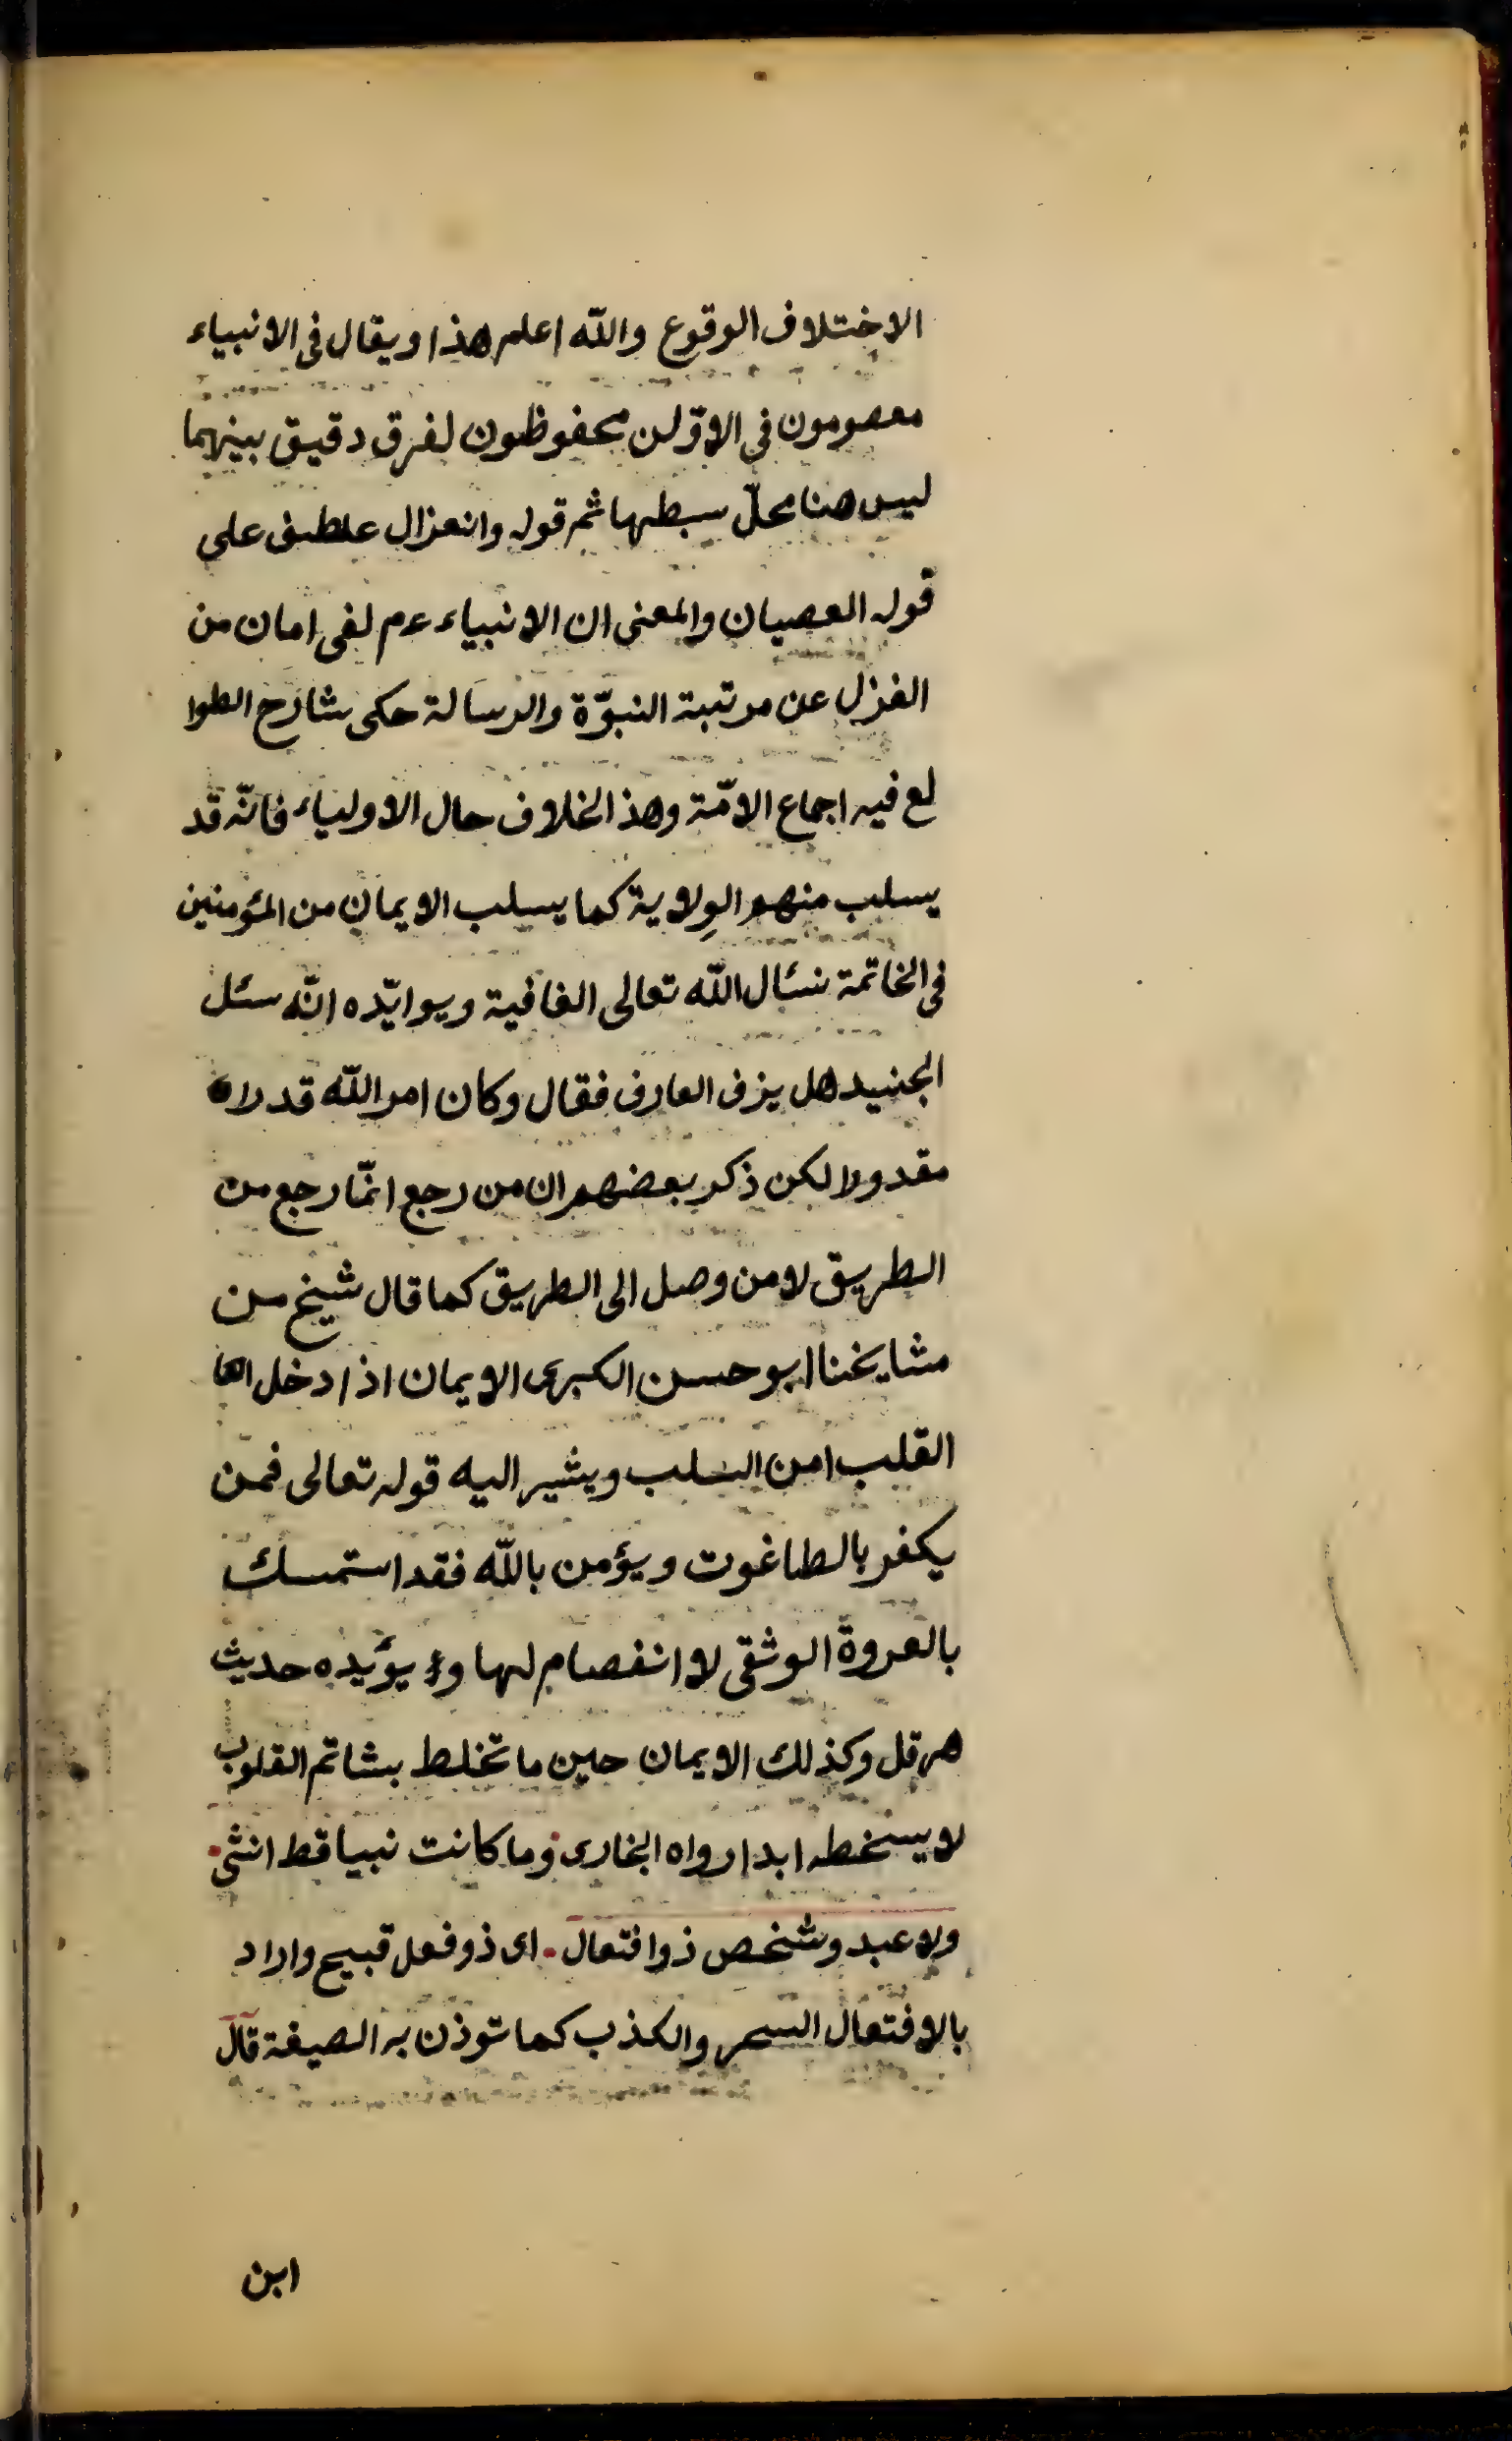 الاختلاف الوقوع والله اعلم هذا ويقال فى الانبياء
معصومون فى الاوّلن محفوظون لفرق دقيق بينهما
ليس هنا محلّ سبطها ثم قوله وانعزال علطف على
قوله العصيان والمعنى ان الانبياء عم لفى امان من
الغزل عن مرتبة النبوّة والرسالة حكى شارح الطوا
لع فيه اجماع الامّة وهذ الخلاف حال الاولياء فانّه قد
يسلب منهم الوِلاية كما يسلب الايمان من المؤمنين
فى الخاتمة نسئال الله تعالى الغافية ويوايّده انّه سئل
الجنيد هل يزف العارف فقال وكان امر الله قدرا
مقدورا لكن ذكر بعضهم ان من رجع انّما رجع من
الطريق لا من وصل الى الطريق كما قال شيخ من
مشايخنا ابو حسن الكبرى الايمان اذا دخل
القلب امن السلب ويشير اليه قوله تعالى فمن
يكفر بالطاغوت ويؤمن بالله فقد استمسك
بالعروة الوثقى لا انفصام لها و يؤيده حديث
هرقل وكذلك الايمان حين ما تخلط بشاتم القلوب
لا يسخطه ابدا رواه البخارى وما كانت نبيا قط انثى
ولا عبد وشخص ذو افتعال اى ذو فعل قبيح واراد
بالافتعال السحر والكذب كما توذن به الصيغة قال
ابن